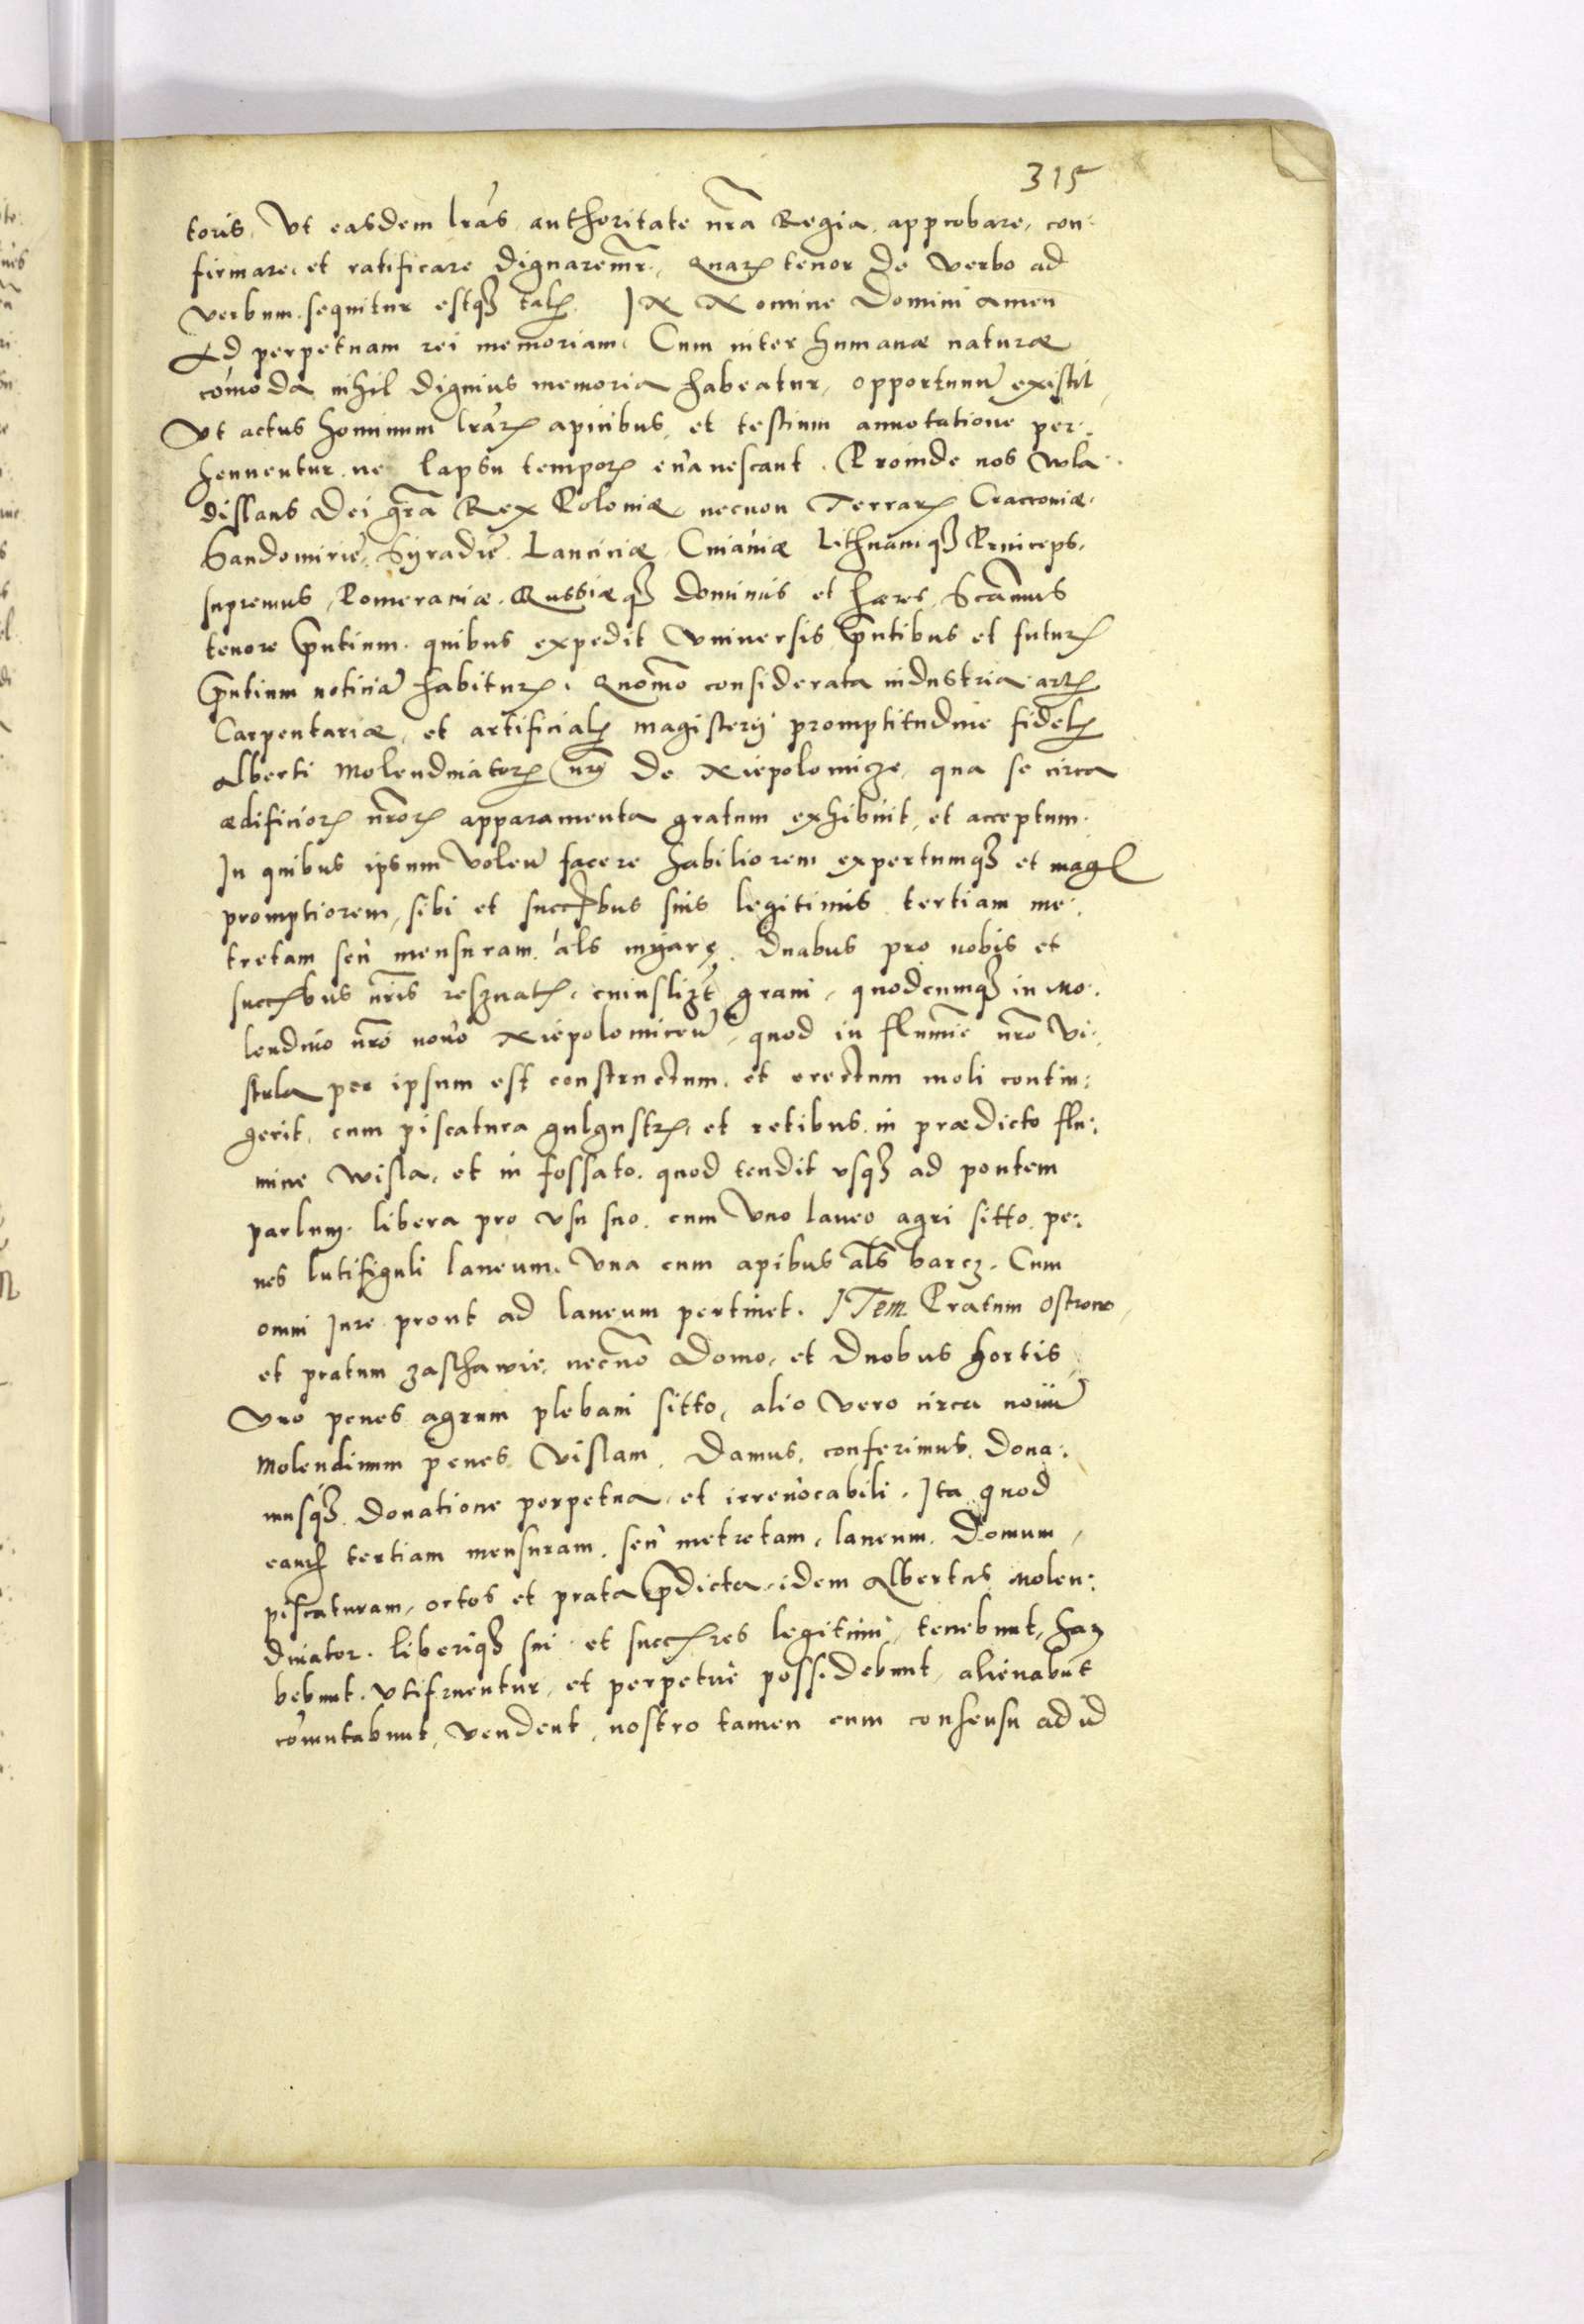 315
toris, Vt easdem lrãs authoritate nrã Regia approbare, con:
firmare, et ratificare dignaremr̃, Quarꝝ tenor de verbo ad
verbum sequitur estqꝫ talꝭ. IN Nomine Domini Amen
Ad perpetuam rei memoriam. Cum inter humanæ naturæ
cõmoda nihil dignius memoria habeatur, opportunũ existit,
Vt actus hominum lrãrꝝ apicibus, et testium annotatione per:
hennentur ne lapsu temporꝭ euanescant. Proinde nos Wla:
dislaus Dei grã Rex Poloniæ necnon Terrarꝝ Cracouiæ,
Sandomirie, Syradie, Lanciciæ, Cuiauiæ Lithuaniqꝫ Princeps,
supremus, Pomeraniæ, Russiæqꝫ Dominus et hæres, Scãmus
tenore p̃ntium quibus expedit Vniuersis p̃ntibus et futurꝭ
p̃ntium noticiã habiturꝭ, Quomõ considerata industria artꝭ
Carpentariæ, et artificialꝭ magisterij promptitudine fidelꝭ
Alberti Molendinatorꝭ nrĩ de Niepolomicze, qua se circa
ædificiorꝝ nrõrꝝ apparamenta gratum exhibuit, et acceptum.
In quibus ipsum volen̄ facere habiliorem expertumqꝫ et magꝭ
promptiorem, sibi et succꝭbus suis legitimis tertiam me:
tretam seu mensuram als myarę, duabus pro nobis et
succꝭbus nrĩs reseruatꝭ, cuiuslibet grani, quodcumqꝫ in Mo:
lendino nrõ nouo Niepolomiceñ, quod in flumine nrõ Vi:
stula per ipsum est constructum, et erectum moli contin:
gerit, cum piscatura gulgustrꝭ, et retibus in prædicto flu:
mine Wisla, et in fossato, quod tendit vsqꝫ ad pontem
paruum, libera pro vsu suo, cum vno laneo agri sitto pe:
nes lutifiguli laneum, vna cum apibus als barcz, Cum
omni Iure prout ad laneum pertinet. ITem Pratum Ostrow,
et pratum zaschawie, necnõ Domo, et duobus hortis,
Vno penes agrum plebani sitto, alio vero circa nouũ
Molendinum penes Vislam, Damus, conferimus, Dona:
musqꝫ donatione perpetua, et irreuocabili. Ita quod
eandꝭ tertiam mensuram, seu metretam, laneum, Domum,
piscaturam, ortos et prata p̃dicta, idem Albertus Molen:
dinator, liberiqꝫ sui et succꝭres legitimi, tenebunt, ha:
bebunt, vtifruentur, et perpetue possidebunt, alienabũt
cõmutabunt, vendent, nostro tamen cum consensu ad id